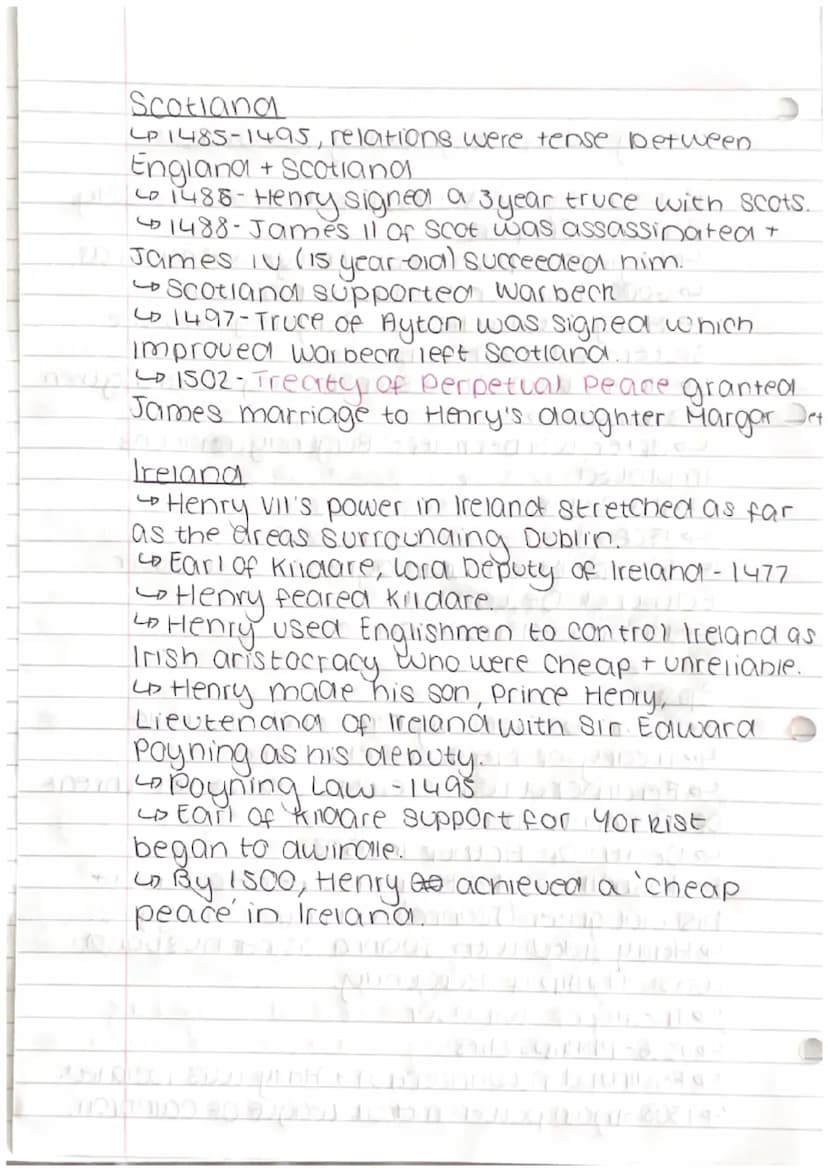 Scotland
↳ 1485-1495, relations were tense between
England + Scotland
↳ 1486- Henry signed a 3 year truce with Scots.
↳ 1488- James II of Scot was assassinated +
James IV (15 year-old) succeeded him.
↳ Scotland supported Warbeck
↳ 1497-Truce of Ayton was signed which
improved Warbeck left Scotland.
↳ 1502- Treaty of Perpetual Peace granted
James marriage to Henry's daughter Margaret
Ireland
↳ Henry VII's power in Ireland stretched as far
as the areas surrounding Dublin.
↳ Earl of Kildare, Lord Deputy of Ireland - 1477
↳ Henry feared Kildare.
↳ Henry used Englishmen to control Ireland as
Irish aristocracy who were cheap + unreliable.
↳ Henry made his son, Prince Henry,
Lieutenand of Ireland with Sir Edward
Poyning as his debuty.
↳ Poyning Law - 1495
↳ Earl of Kildare support for Yorkist
began to dwindle.
↳ By 1500, Henry achieved a 'cheap
peace' in Ireland.